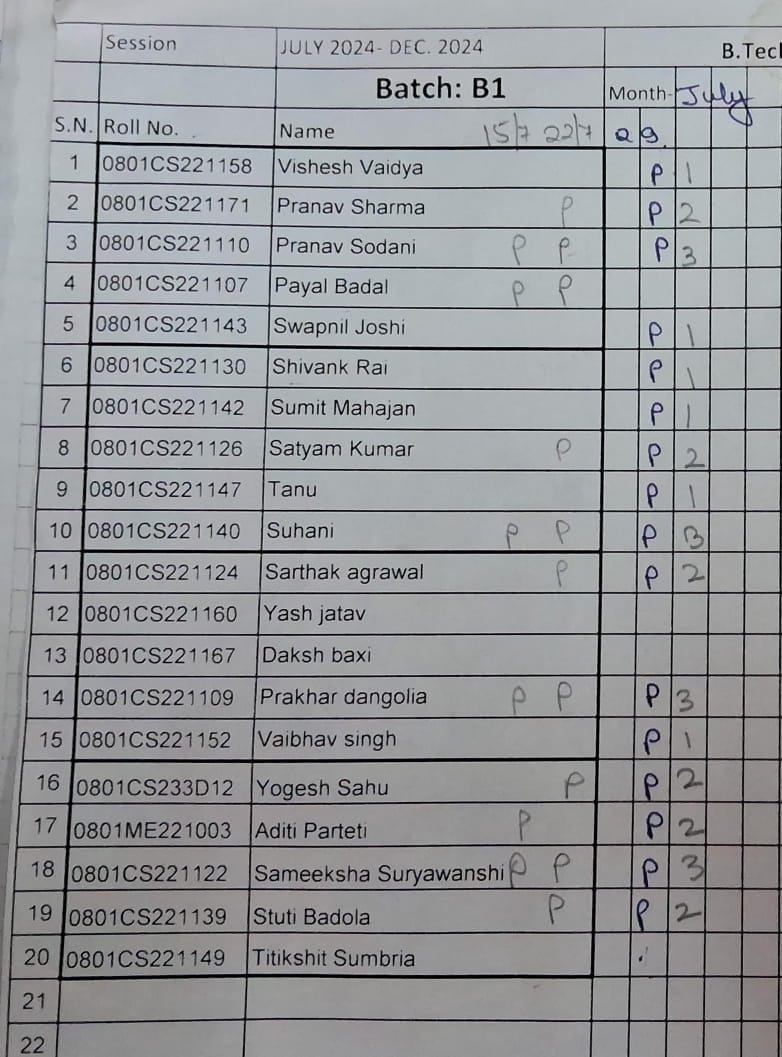 Session JULY 2024- DEC. 2024 B.Tecl
Batch: B1 Month- July
S.N. Roll No. Name 15/7 22/7 29
1 0801CS221158 Vishesh Vaidya P 1
2 0801CS221171 Pranav Sharma P P 2
3 0801CS221110 Pranav Sodani P P P 3
4 0801CS221107 Payal Badal P P
5 0801CS221143 Swapnil Joshi P 1
6 0801CS221130 Shivank Rai P 1
7 0801CS221142 Sumit Mahajan P 1
8 0801CS221126 Satyam Kumar P P 2
9 0801CS221147 Tanu P 1
10 0801CS221140 Suhani P P P 3
11 0801CS221124 Sarthak agrawal P P 2
12 0801CS221160 Yash jatav
13 0801CS221167 Daksh baxi
14 0801CS221109 Prakhar dangolia P P P 3
15 0801CS221152 Vaibhav singh P 1
16 0801CS233D12 Yogesh Sahu P P 2
17 0801ME221003 Aditi Parteti P P 2
18 0801CS221122 Sameeksha Suryawanshi P P P 3
19 0801CS221139 Stuti Badola P P 2
20 0801CS221149 Titikshit Sumbria
21
22